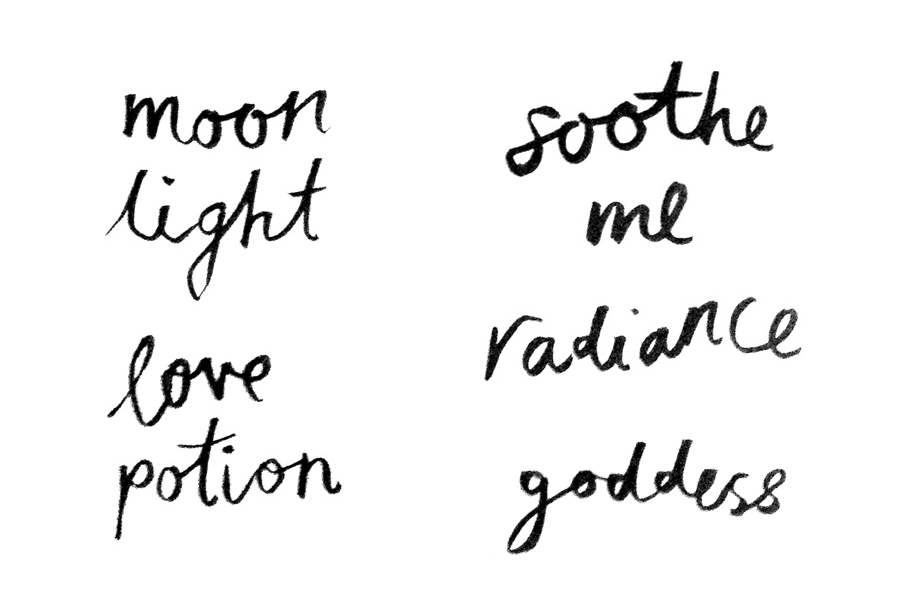 moon
light
love
potion
soothe
me
radiance
goddess